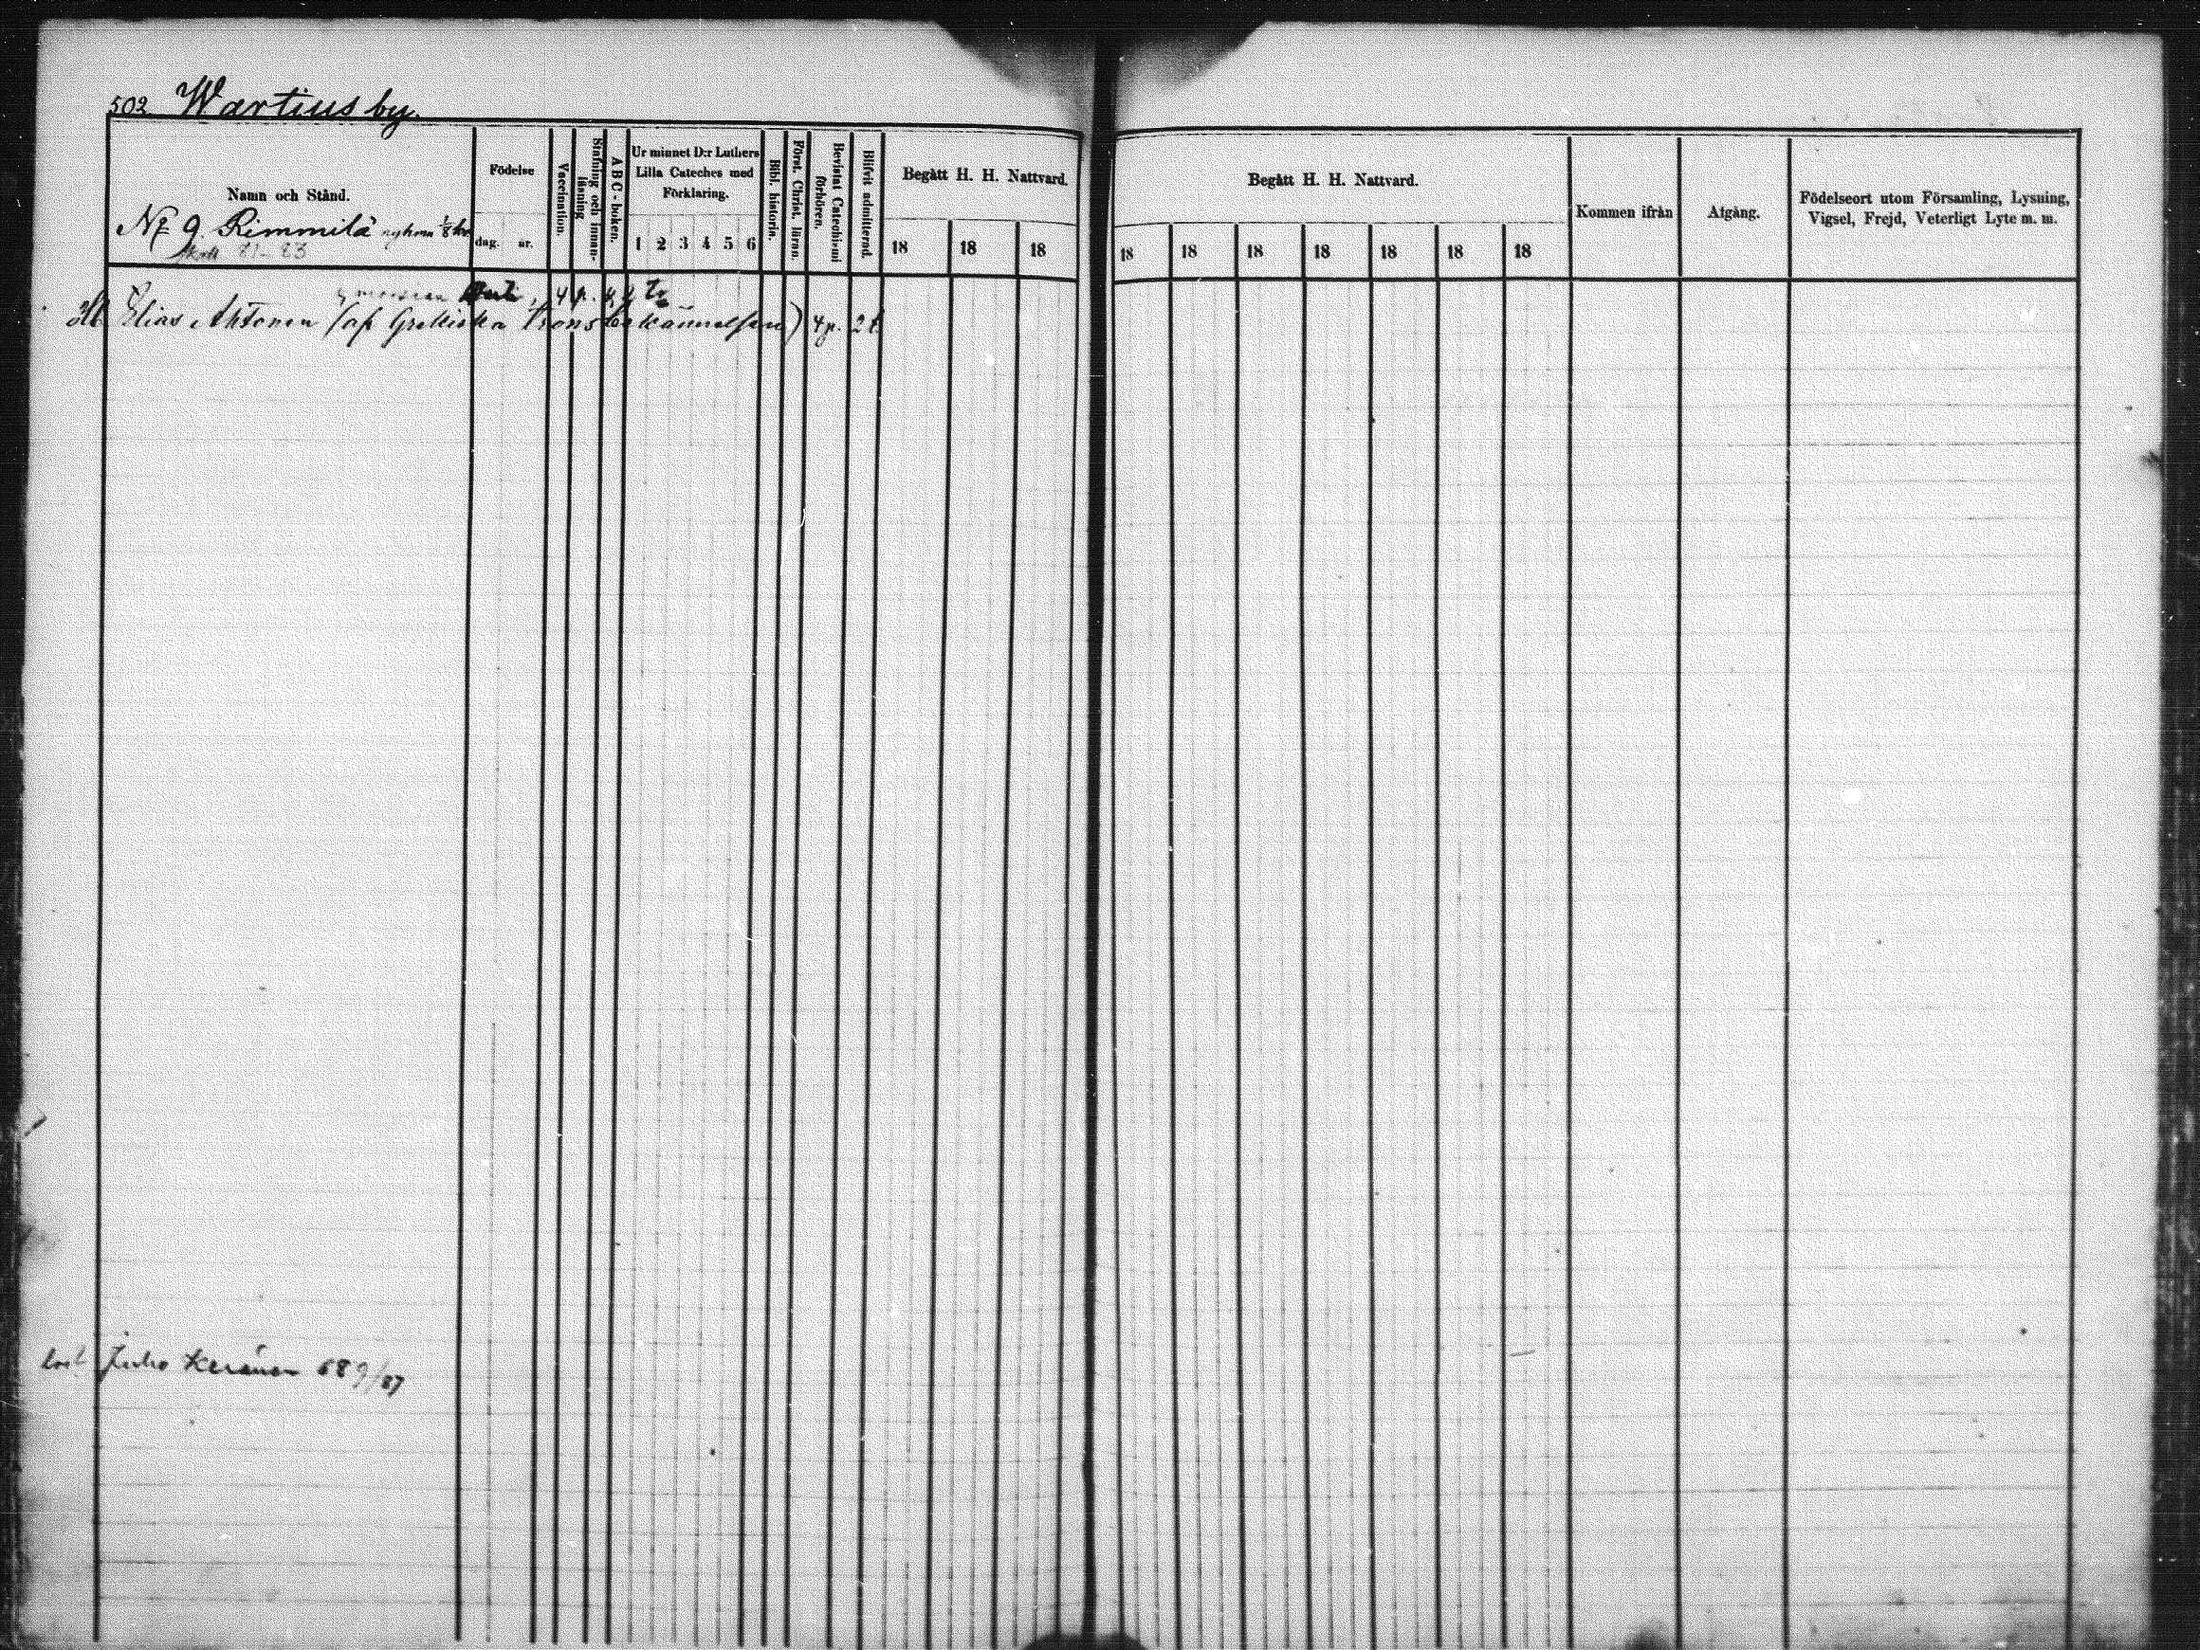 502 Wartius by.
Namn och Stånd.
Födelse
dag. år.
Vaccination.
Stafning och innan-läsning
A B C-boken.
Ur minnet D:r Luthers
Lilla Cateches med
Förklaring.
1 2 3 4 5 6
Bibl. historia.
Först. Christ. läran.
Bevistat Catechismi förhören.
Blifvit admitterad.
Begått H. H. Nattvard.
18 18 18
Begått H. H. Nattvard.
18 18 18 18 18 18 18
Kommen ifrån
Afgång.
Födelseort utom Församling, Lysning,
Vigsel, Frejd, Veterligt Lyte m. m.
No 9 Rimmilä 1/8
21-23
4 p.
Elias Ahtonen (af Grekiska trons bekännelsen) 4 p. 2 t
Juho Keränen 68 9/87